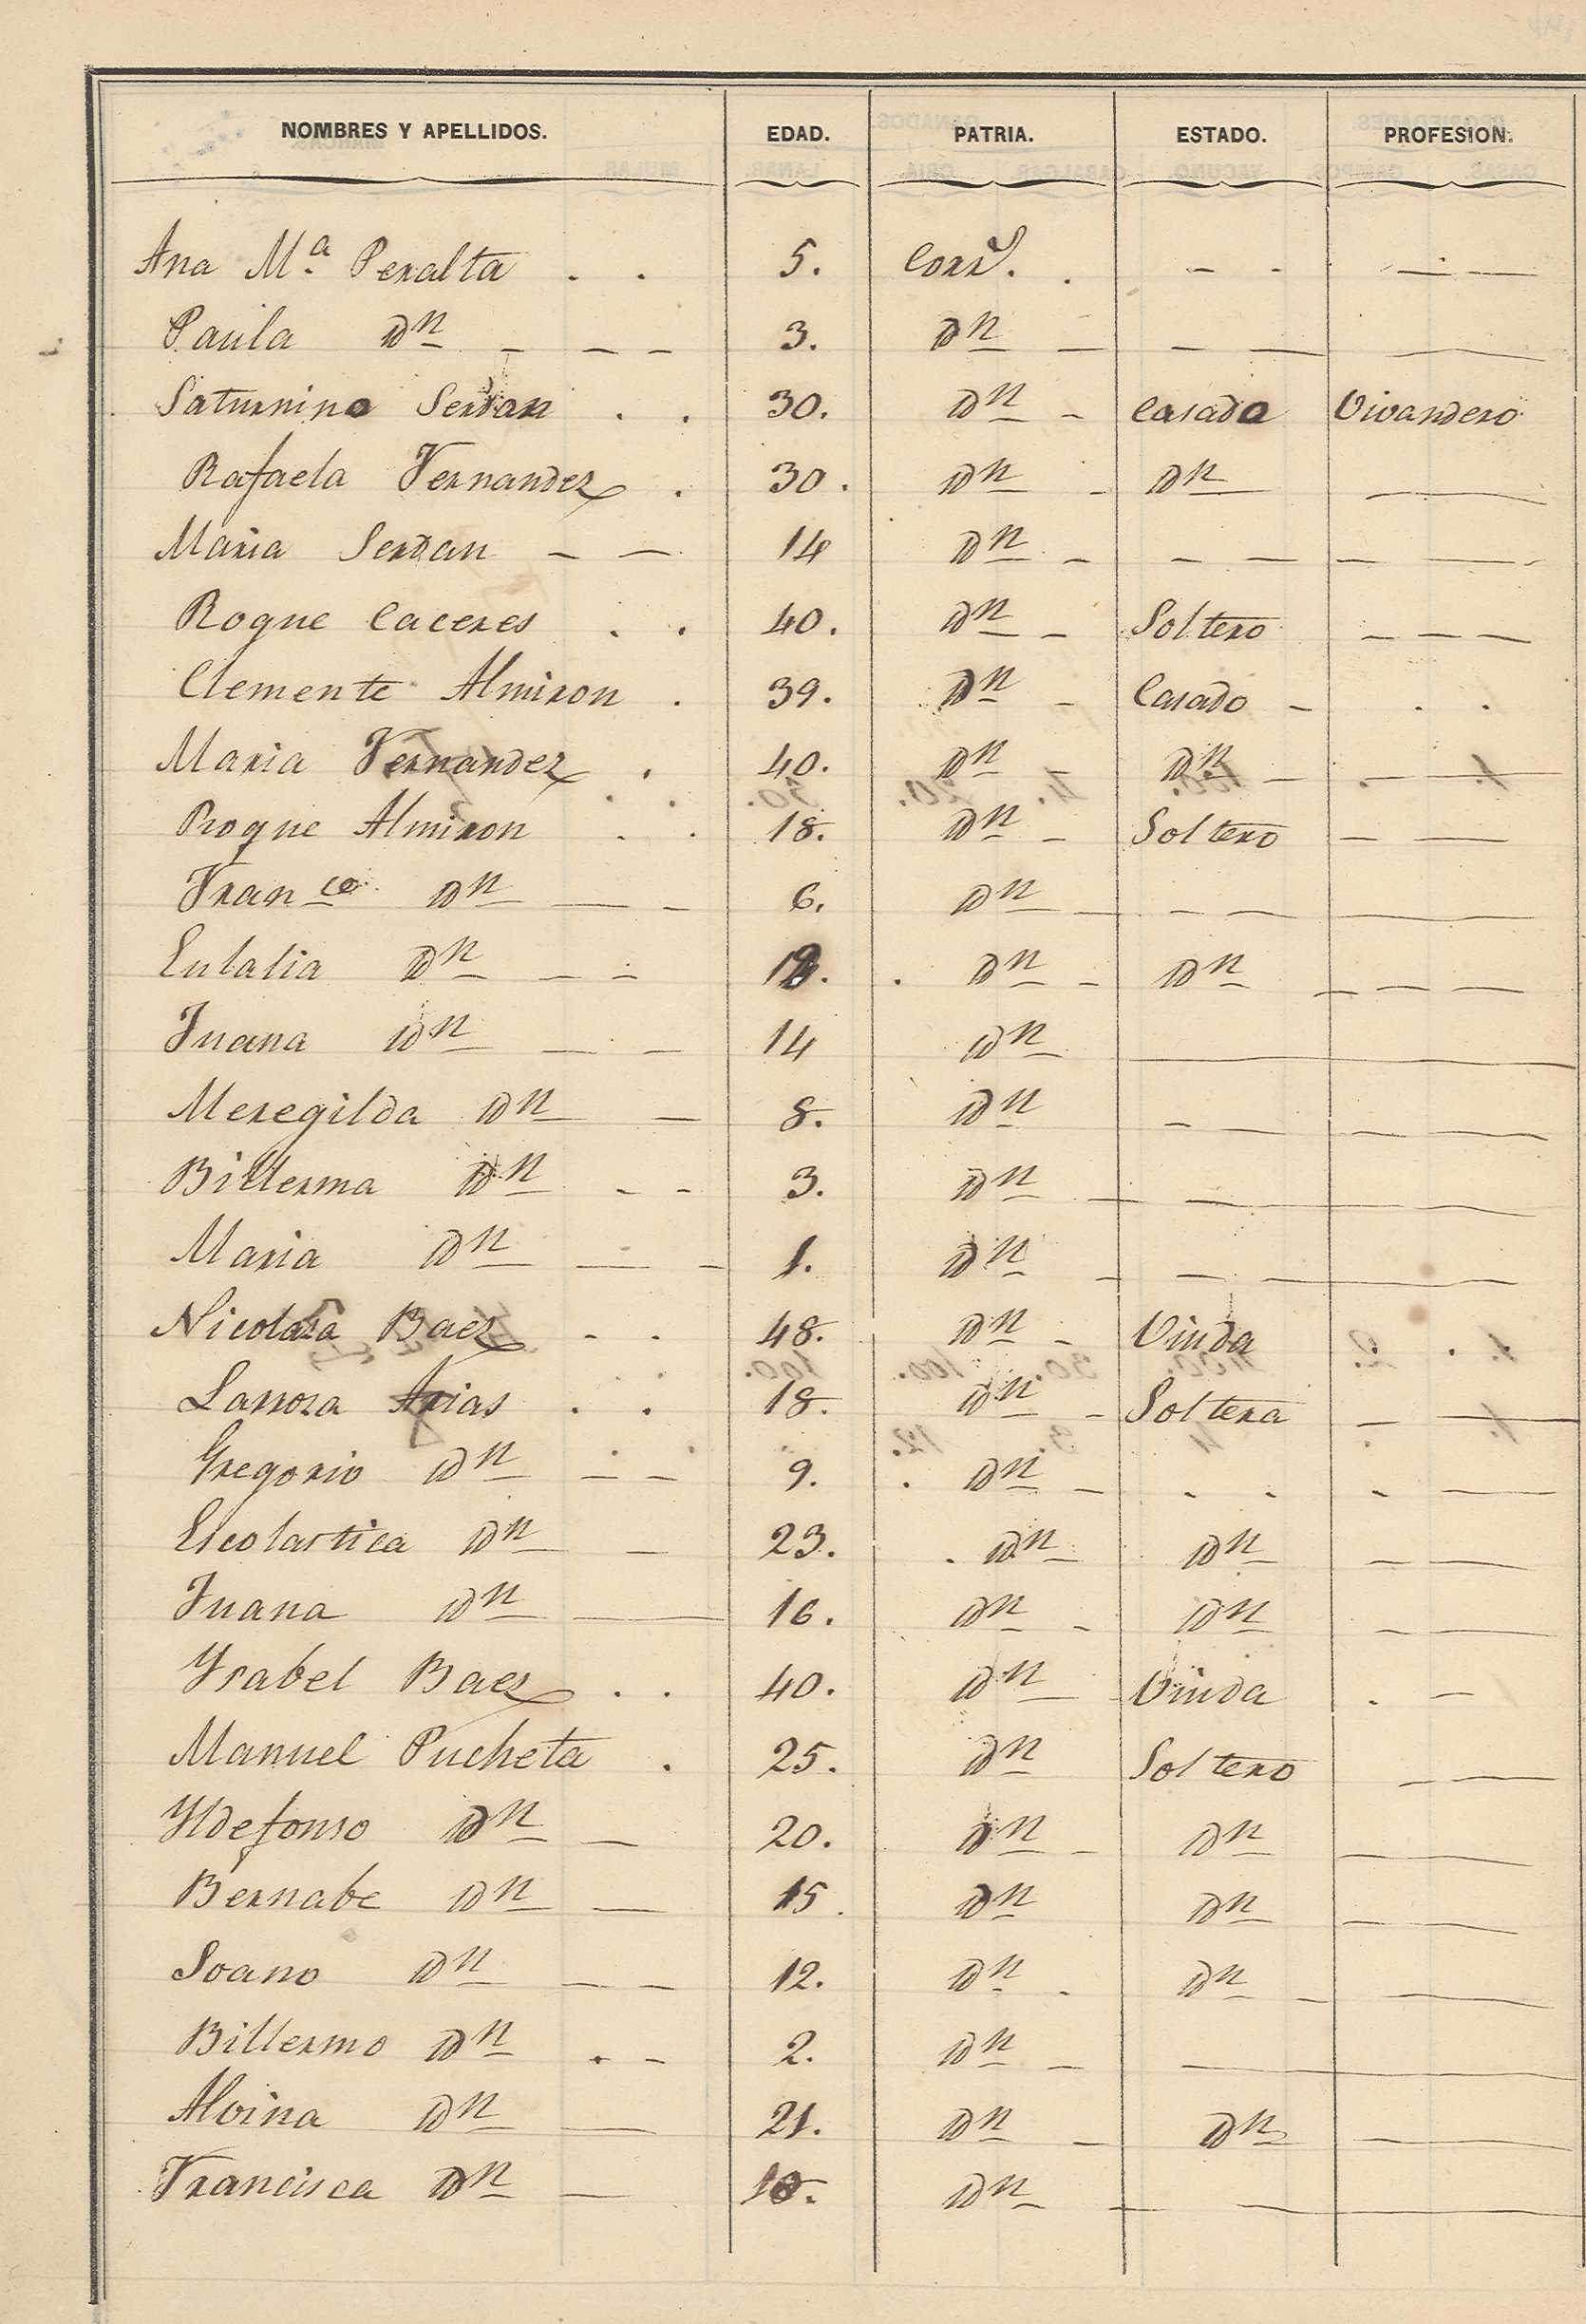 NOMBRES Y APELLIDOS. EDAD. PATRIA. ESTADO. PROFESION.
Ana Mª Peralta . . 5. Corrs. . - - — —
Paula Dn - - - 3. Dn — - — —
Saturnino Serdan . . 30. Dn - Casado Vivandero
Rafaela Fernandez . 30. Dn - Dn —
Maria Serdan - — 14 Dn - - — - — -
Roque Caceres . . 40. Dn - Soltero - - —
Clemente Almiron . 39. Dn - Casado - . .
Maria Fernandez . 40. Dn - Dn - - —
Roque Almiron . . 18. Dn - Soltero - —
Franco Dn — - 6. Dn — - - —
Eulalia Dn - - . Dn - Dn - - —
Juana Dn — - 14 Dn —
Meregilda Dn — 8. Dn - - — —
Billerma Dn - - 3. Dn — - —
Maria Dn — - 1. Dn - - —
Nicolasa Baez - . 48. Dn - Viuda .
Larrosa Arias . . 18. Dn - Soltera - —
Gregorio Dn - - 9. . Dn - . . - —
Escolastica Dn - 23. . Dn Dn - —
Juana Dn — 16. Dn - Dn - —
Ysabel Baez . . 40. Dn Viuda . -
Manuel Pucheta . 25. Dn Soltero - —
Yldefonso Dn - 20. Dn - Dn — —
Bernabe Dn — 15. Dn Dn - —
Soano Dn — - 12. Dn . Dn - —
Billermo Dn . - 2. Dn - —
Alvina Dn — 21. Dn - Dn - —
Francisca Dn — Dn - —